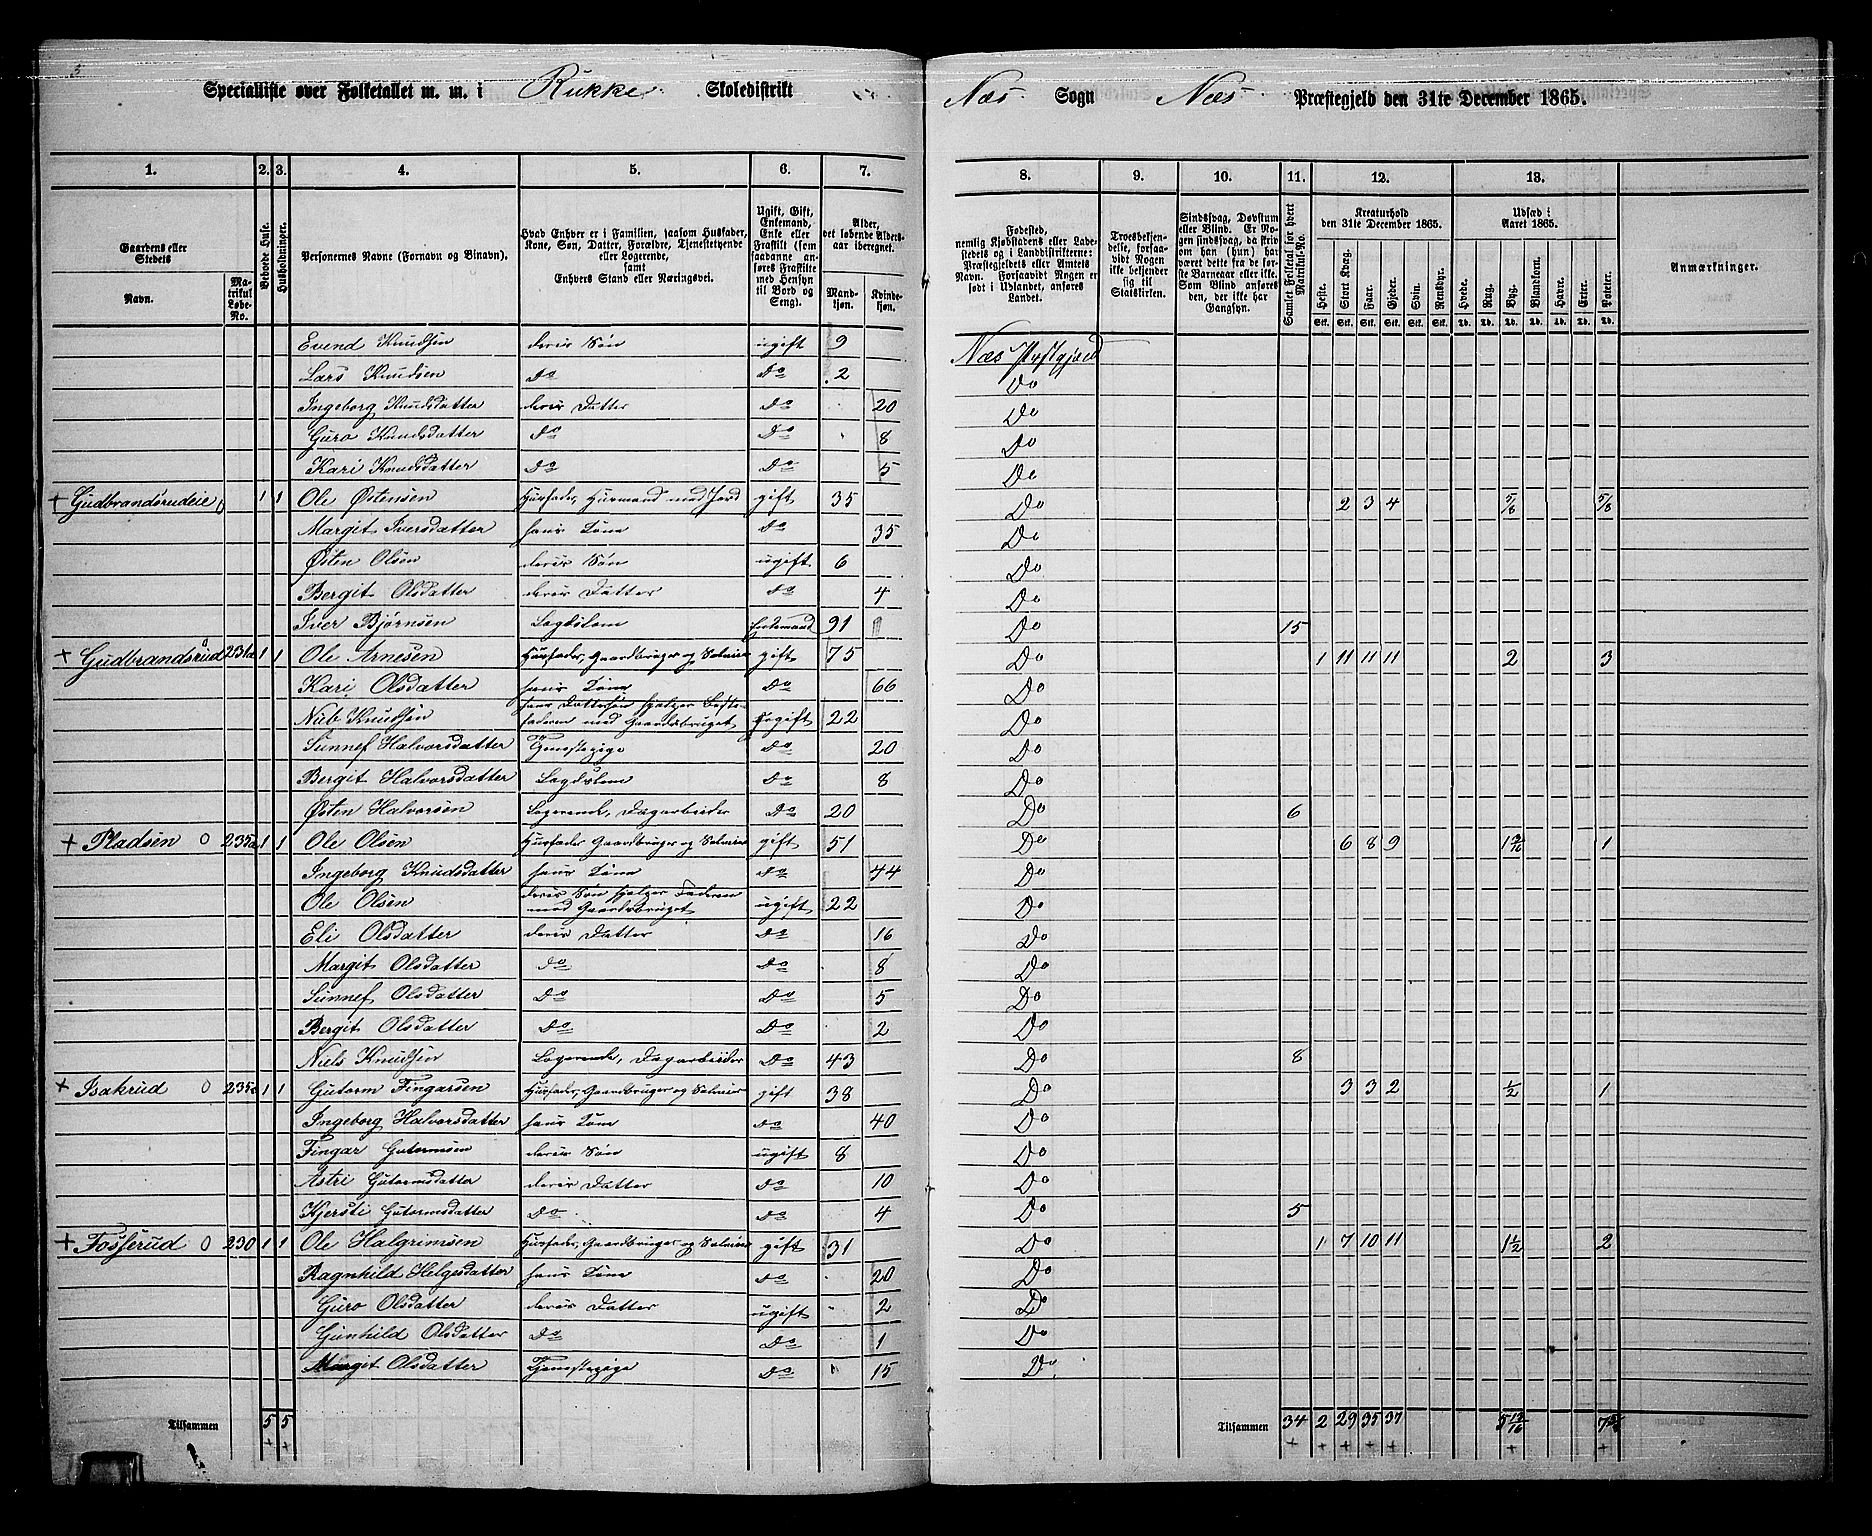 Specialliste over Folketallet m. m. i Rukke Skoledistrikt Næs Sogn Næs Præstegjeld den 31te December 1865.
1. 2. 3. 4. 5. 6. 7. 8. 9. 10. 11. 12. 13.
Gaardens eller Stedets
Navn.
Matrikul Løbe-No.
Beboede Huse.
Husholdninger.
Personernes Navne (Fornavn og Binavn).
Hvad Enhver er i Familien, saasom Husfader, Kone, Søn, Datter, Forældre, Tjenestetyende eller Logerende, samt Enhvers Stand eller Næringsvei.
Ugift, Gift, Enkemand, Enke eller Fraskilt (som saadanne anføres Fraskilte med Hensyn til Bord og Seng).
Alder, det løbende Aldersaar iberegnet.
Mandkjøn. Kvindekjøn.
Fødested, nemlig Kjøbstadens eller Ladestedets og i Landdistrikterne: Præstegjeldets eller Amtets Navn. Forsaavidt Nogen er født i Udlandet, anføres Landet.
Troesbekjendelse, forsaavidt Nogen ikke bekjender sig til Statskirken.
Sindssvag, Døvstum eller Blind. Er Nogen sindssvag, da skrives om han (hun) har været dette fra de første Barneaar eller ikke. Som Blind anføres den, der ikke har Gangsyn.
Samlet Folketal for hvert Matrikuls-No.
Kreaturhold den 31te December 1865.
Heste. Stort Kvæg. Faar. Gjeder. Svin. Rensdyr.
Udsæd i Aaret 1865.
Hvede. Rug. Byg. Blandkorn. Havre. Erter. Poteter.
Anmærkninger.
Evend Knudsen deres Søn ugift 9 Næs Præstgjæld
Lars Knudsen Do Do 2 Do
Ingeborg Knudsdatter deres Datter Do 20 Do
Guro Knudsdatter Do Do 8 Do
Kari Knudsdatter Do Do 5 Do
+ Gudbrandsrudeie 1 1 Ole Østensen Husfader, Husmand med Jord gift 35 Do 2 3 4 5/8 5/8
Margit Iversdatter hans Kone Do 35 Do
Østen Olsen deres Søn ugift 6 Do
Bergit Olsdatter deres Datter Do 4 Do
Iver Bjørnsen Lægdslem Enkemand 91 Do 15
+ Gudbrandsrud 231a 1 1 Ole Arnesen Husfader, Gaardbruger og Selveier gift 75 Do 1 11 11 11 2 3
Kari Olsdatter hans Kone Do 66 Do
Nub Knudsen hans Dattersøn hjelper Bestefaderen med Gaardsbruget ugift 22 Do
Sünnef Halvorsdatter Tjenestepige Do 20 Do
Bergit Halvorsdatter Lægdslem Do 8 Do
Østen Halvorsen Logerende, Dagarbeider Do 20 Do 6
+ Pladsen O 235a 1 1 Ole Olsen Husfader Gaardbruger og Selveier gift 51 Do 6 8 9 1
Ingeborg Knudsdatter hans Kone Do 44 Do
Ole Olsen deres Søn hjelper Faderen med Gaardsbruget ugift 22 Do
Eli Olsdatter deres Datter Do 16 Do
Margit Olsdatter Do Do 8 Do
Sünnef Olsdatter Do Do 5 Do
Bergit Olsdatter Do Do 2 Do
Niels Knudsen Logerende, Dagarbeider Do 43 Do 8
+ Isakrud O 235c 1 1 Gutorm Fingarsen Husfader, Gaardbruger og Selveier gift 38 Do 3 3 2 1/2 1
Ingeborg Halvorsdatter hans Kone Do 40 Do
Fingar Gutormsen deres Søn ugift 8 Do
Astri Gutormsdatter deres Datter Do 10 Do
Kjersti Gutormsdatter Do Do 4 Do 5
+ Fosserud O 230 1 1 Ole Halgrimsen Husfader, Gaardbruger og Selveier gift 31 Do 1 7 10 11 1 1/2 2
Ragnhild Helgesdatter hans Kone Do 20 Do
Guro Olsdatter deres Datter ugift 2 Do
Gunhild Olsdatter Do Do 1 Do
Margit Olsdatter Tjenestepige Do 15 Do
Tilsammen 5 5 Tilsammen 34 2 29 35 37